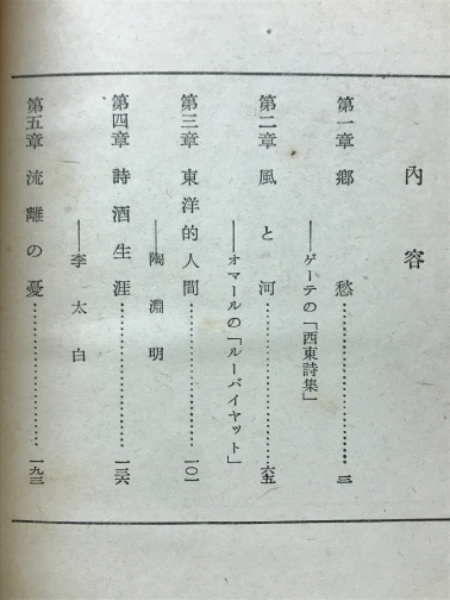 內容
第一章 鄕愁……………………三
――ゲーテの「西東詩集」
第二章 風と河……………………六五
――オマールの「ルーバイヤット」
第三章 東洋的人間……………………一〇一
――陶淵明
第四章 詩酒生涯……………………一三六
――李太白
第五章 流離の憂……………………一九三